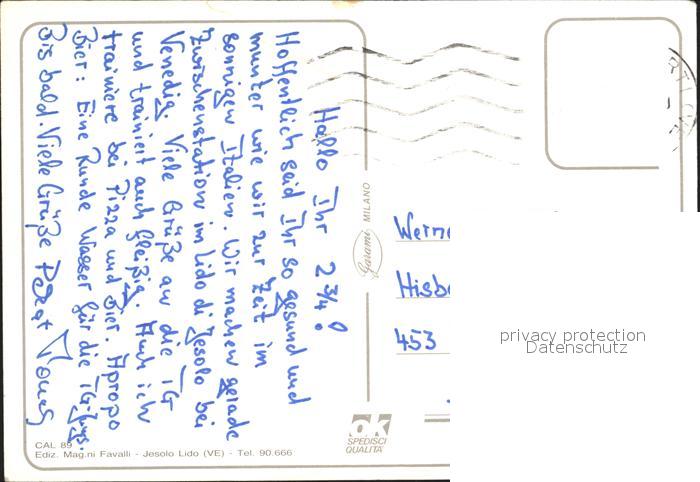 Hallo Ihr 2 3/4!
Hoffentlich seid Ihr so gesund und
munter wie wir zur Zeit im
sonnigen Italien. Wir machen gerade
Zwischenstation im Lido di Jesolo bei
Venedig. Viele Grüße an die TG
und trainiert auch fleißig. Auch ich
trainiere bei Pizza und Bier. Apropo
Bier: Eine Runde Wasser für die TG-Jungs.
Bis bald. Viele Grüße
Garami MILANO
Wern
Hisb
453
privacy protection
Datenschutz
ok
SPEDISCI
QUALITÀ
CAL 89
Ediz. Mag.ni Favalli - Jesolo Lido (VE) - Tel. 90.666